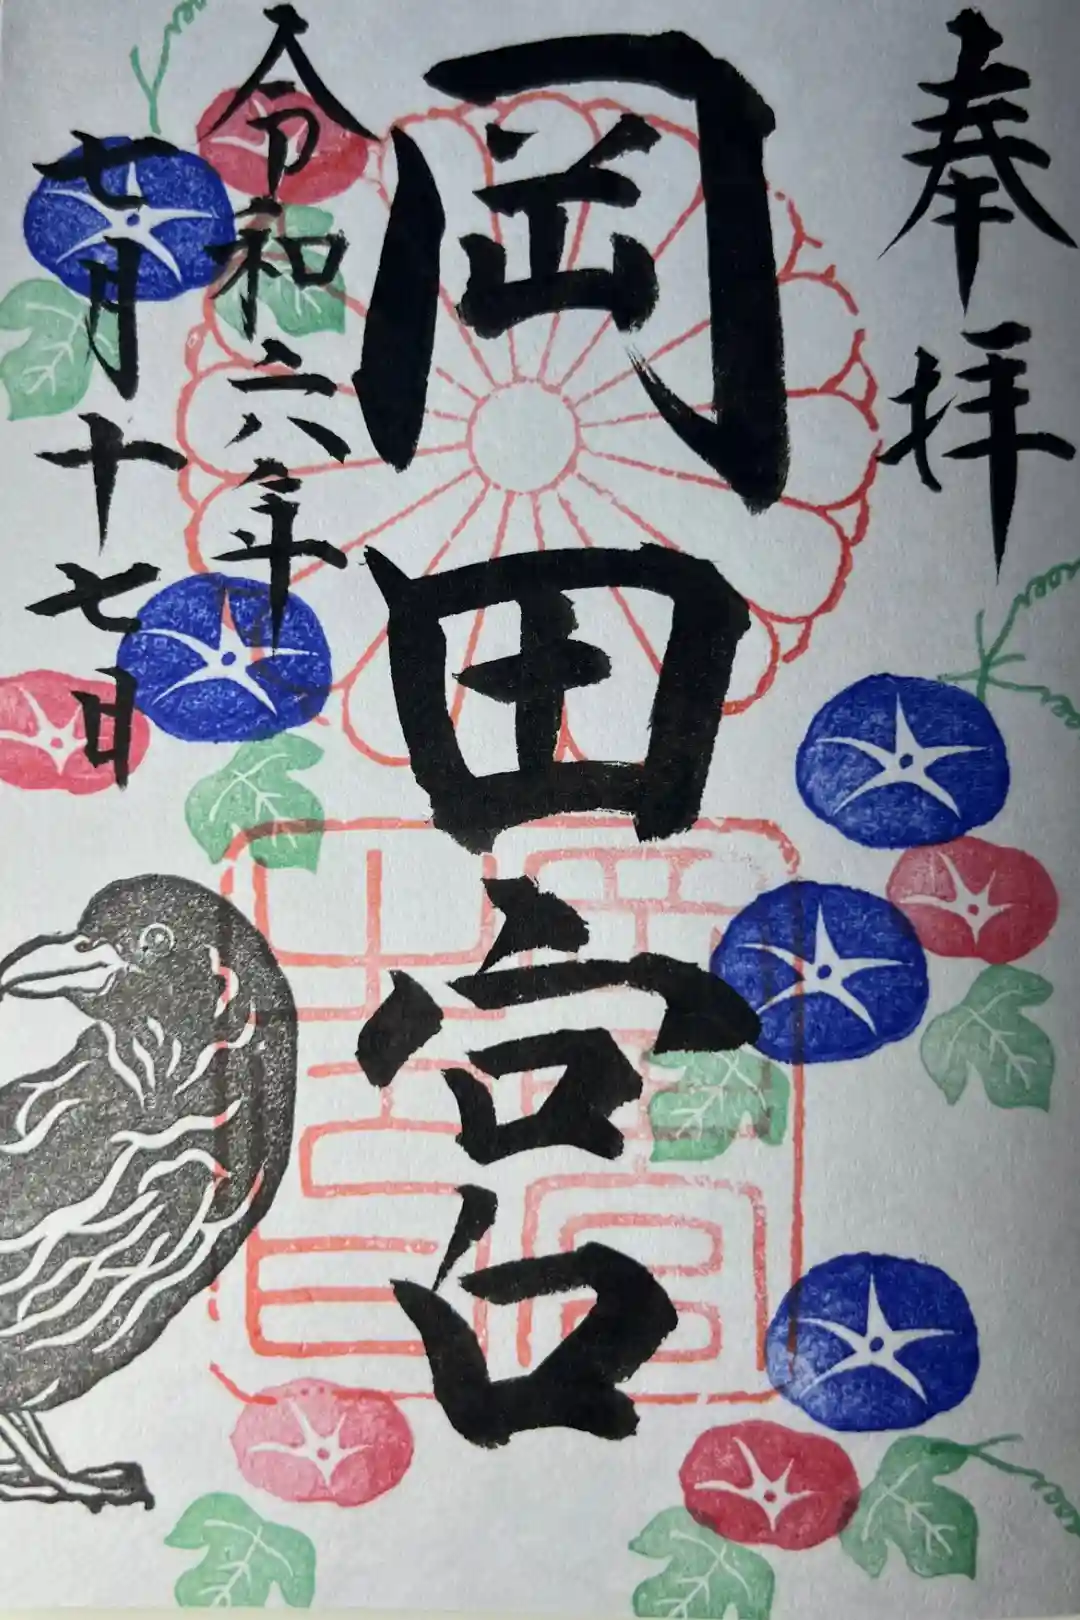 奉拝
岡田宮
令和六年
七月十七日